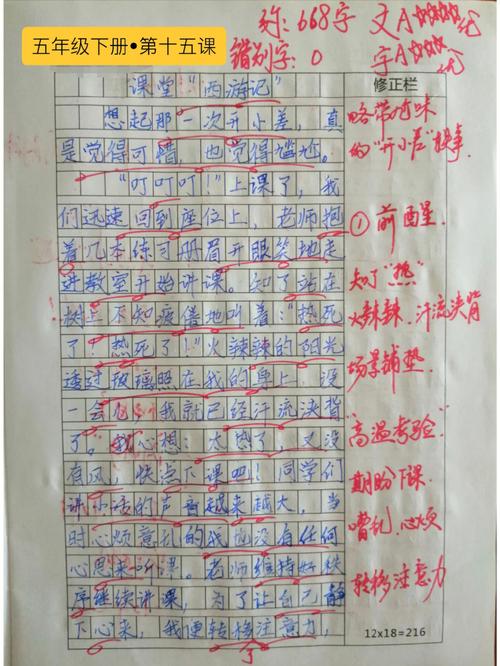 五年级下册•第十五课
称:668字 文A
错别字:0 字A
修正栏
课堂“西游记”
想起那一次开小差,真
是觉得可惜,也觉得尴尬。
“叮叮叮!”上课了,我
们迅速回到座位上,老师抱
着几本练习册眉开眼笑地走
进教室开始讲课。知了站在
树上不知疲倦地叫着:热死
了!热死了!”火辣辣的阳光
透过玻璃照在我的身上,没
一会儿,我就已经汗流浃背
了。我心想:太热了,又没
有风,快点下课吧!同学们
讲小话的声音越来越大,当
时心烦意乱的我也没有任何
心思来听课。老师维持好秩
序继续讲课,为了让自己静
下心来,我便转移注意力,
略带尴味
的“开小差”故事
①前醒
知了“热”
火辣辣、汗流浃背
场景铺垫
“高温考验”
期盼下课
嘈乱、心烦
转移注意力
12x18=216